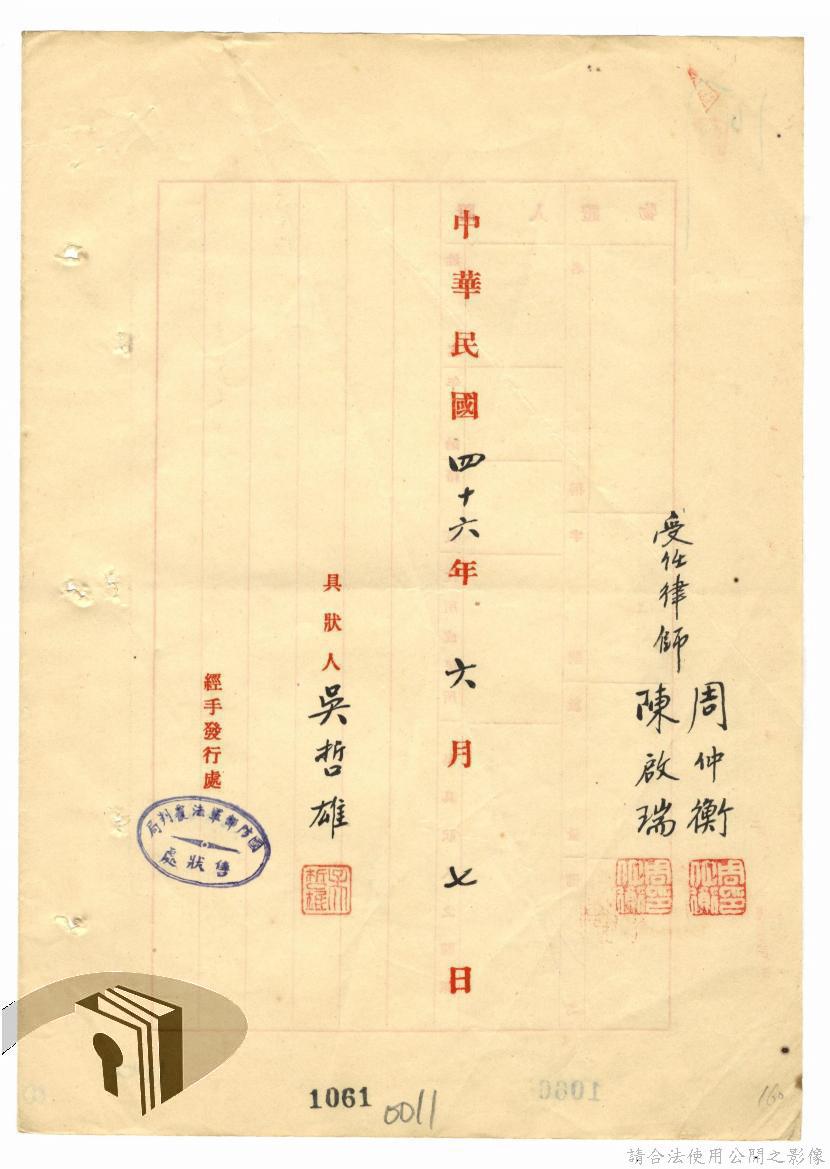 受任律師 周仲衡
陳啟瑞
中華民國四十六年六月七日
具狀人 吳哲雄
經手發行處
國防部軍法覆判局
售狀處
1061
0011
160
請合法使用公開之影像